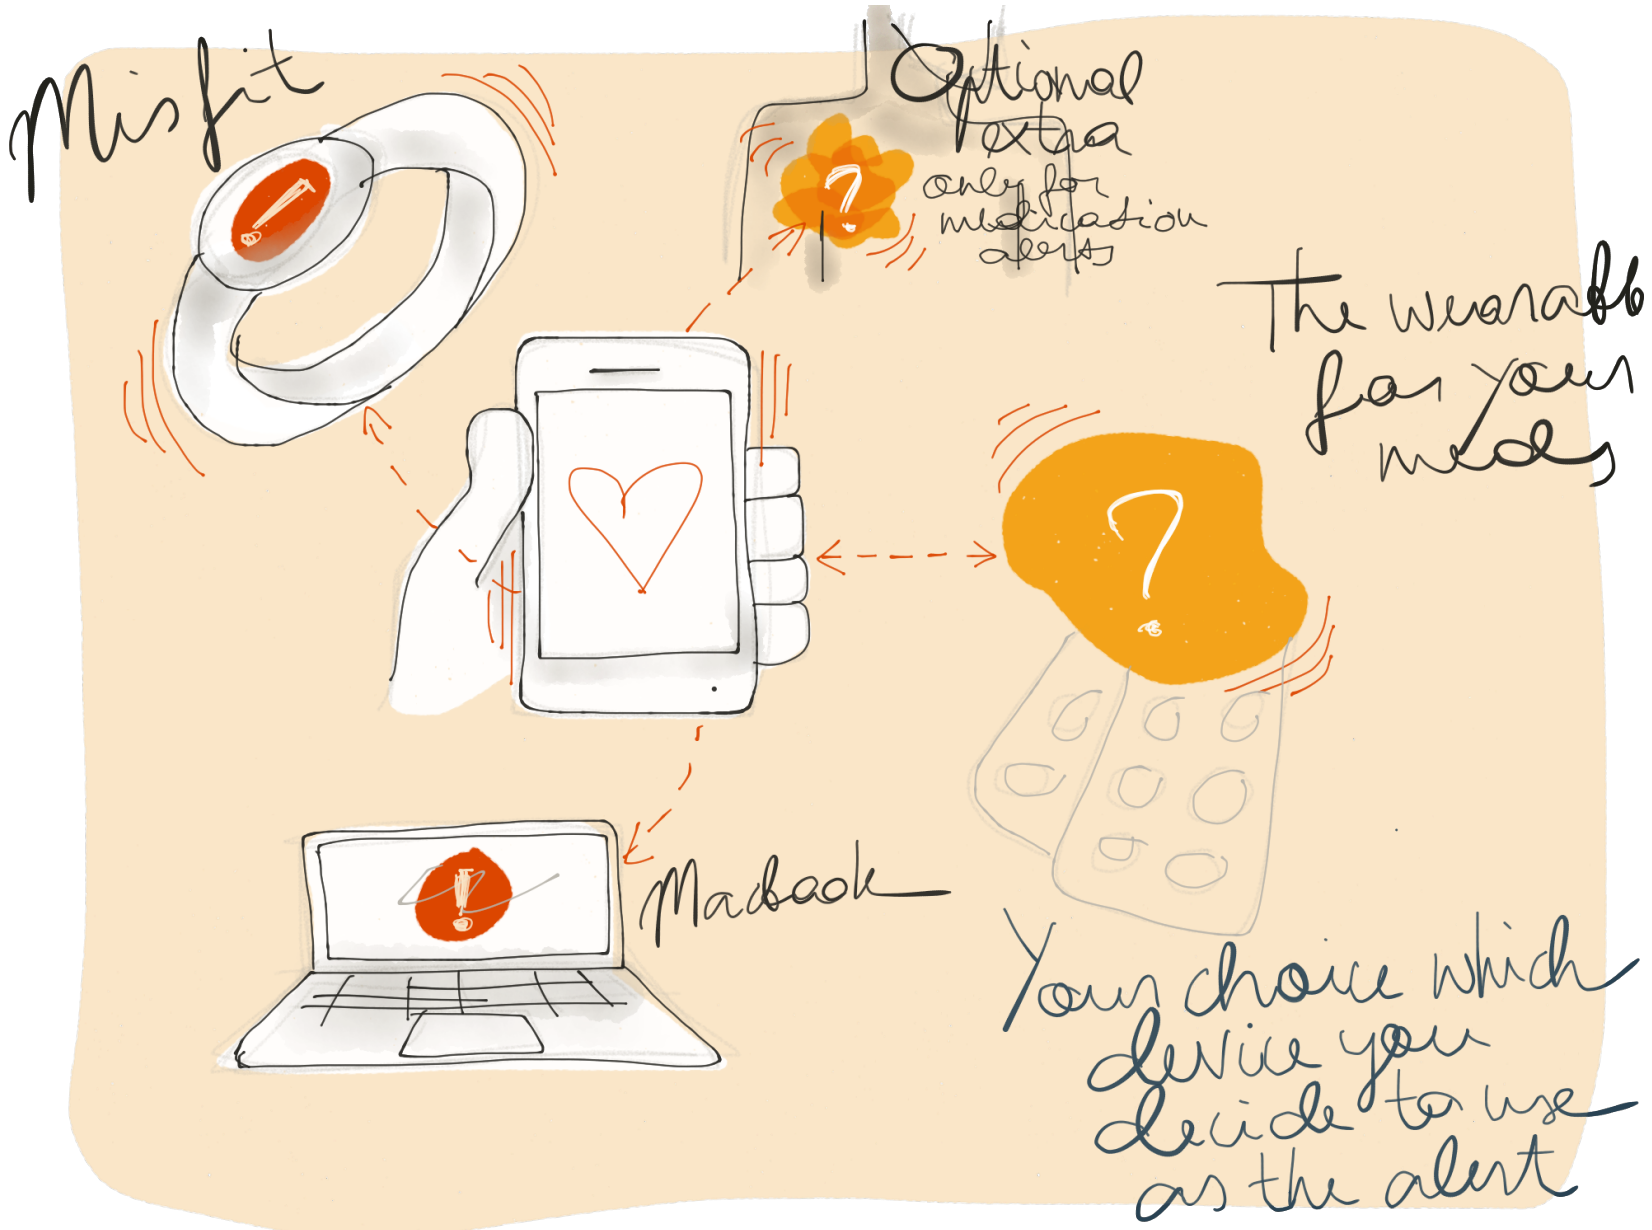 Misfit
!
Optional
extra
only for
medication
alerts
?
The wearable
for your
meds
?
!
Macbook
Your choice which
device you
decide to use
as the alert